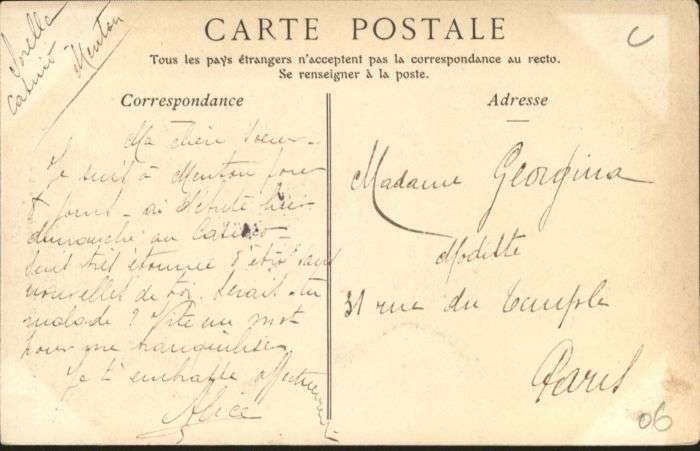 Casino
Menton
CARTE POSTALE
Tous les pays étrangers n'acceptent pas la correspondance au recto.
Se renseigner à la poste.
Correspondance
Adresse
Ma chère Soeur -
Je suis à Menton pour
8 jours - ai débuté hier
dimanche au Casino -
suis très étonnée d'être sans
nouvelles de toi. Serais-tu
malade ? Vite un mot
pour me tranquiliser
Je t'embrasse affectueusement
Alice
Madame Georgina
Modiste
31 rue du Temple
Paris
06